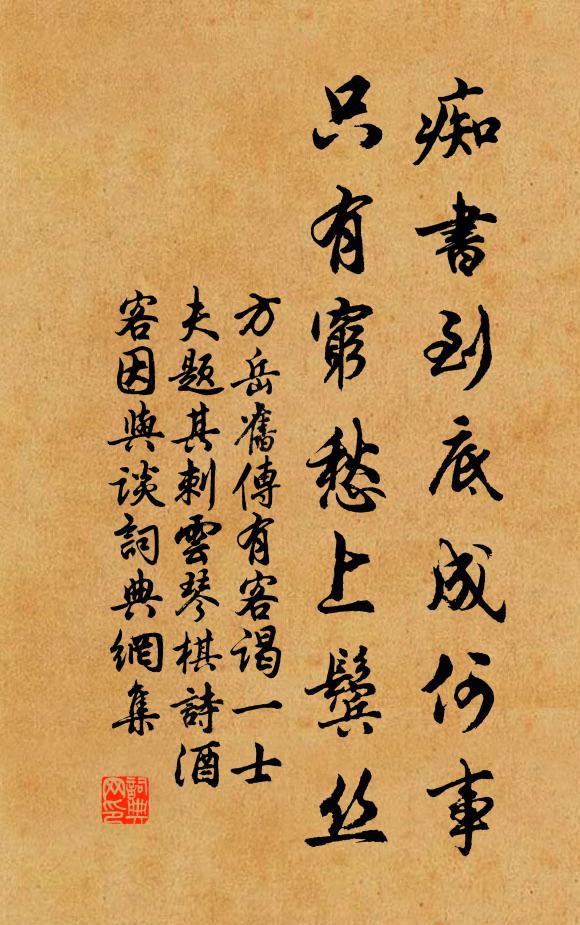 痴書到底成何事
只有窮愁上鬓丝
方岳舊傳有客謁一士
夫題其刺雲琴棋詩酒
客因與談詞典網集
詞典网印